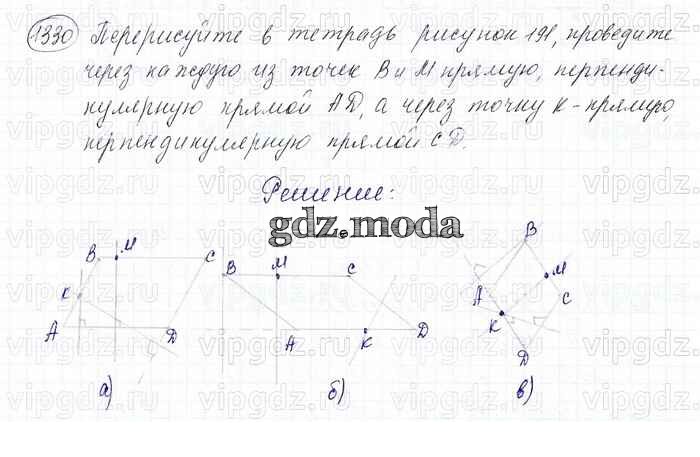 1330 Перерисуйте в тетрадь рисунок 191, проведите
через каждую из точек B и M прямую, перпенди-
кулярную прямой AD, а через точку K - прямую,
перпендикулярную прямой CD.
Решение:
gdz.moda
B M C
K
A D
а)
B M C
A K D
б)
B
M
A C
K
D
в)
vipgdz.ru